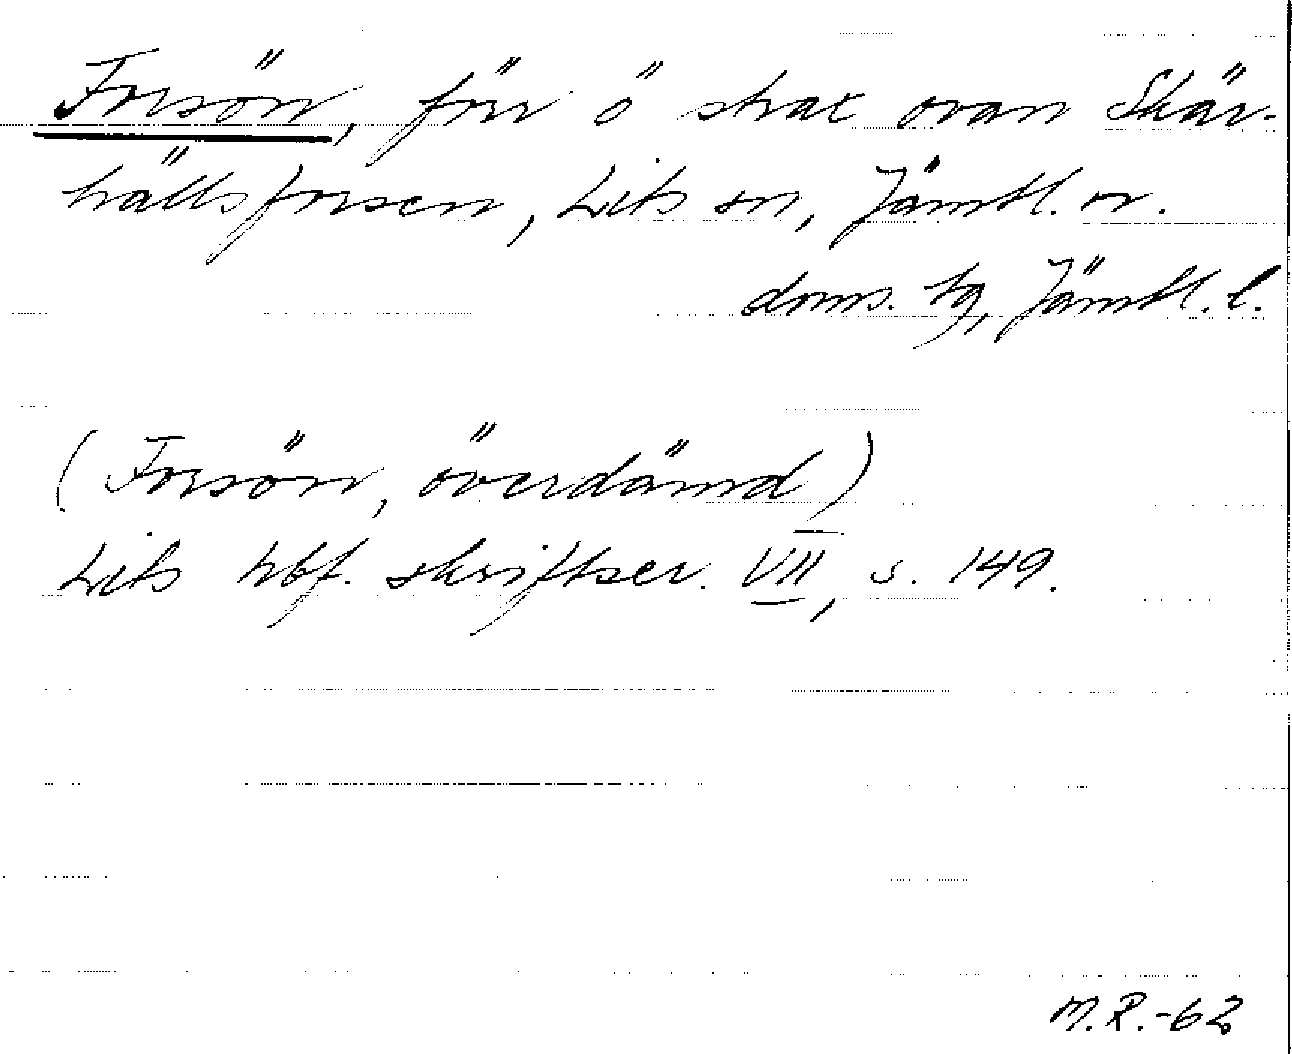 Forsön, förr ö strax ovan Skär-
hällsforsen, Lits sn, Jämtl. v.
doms. tg, Jämtl. l.
(Forsön, överdämd)
Lits hbf. skriftser. VII, s. 149.
M.R.-62